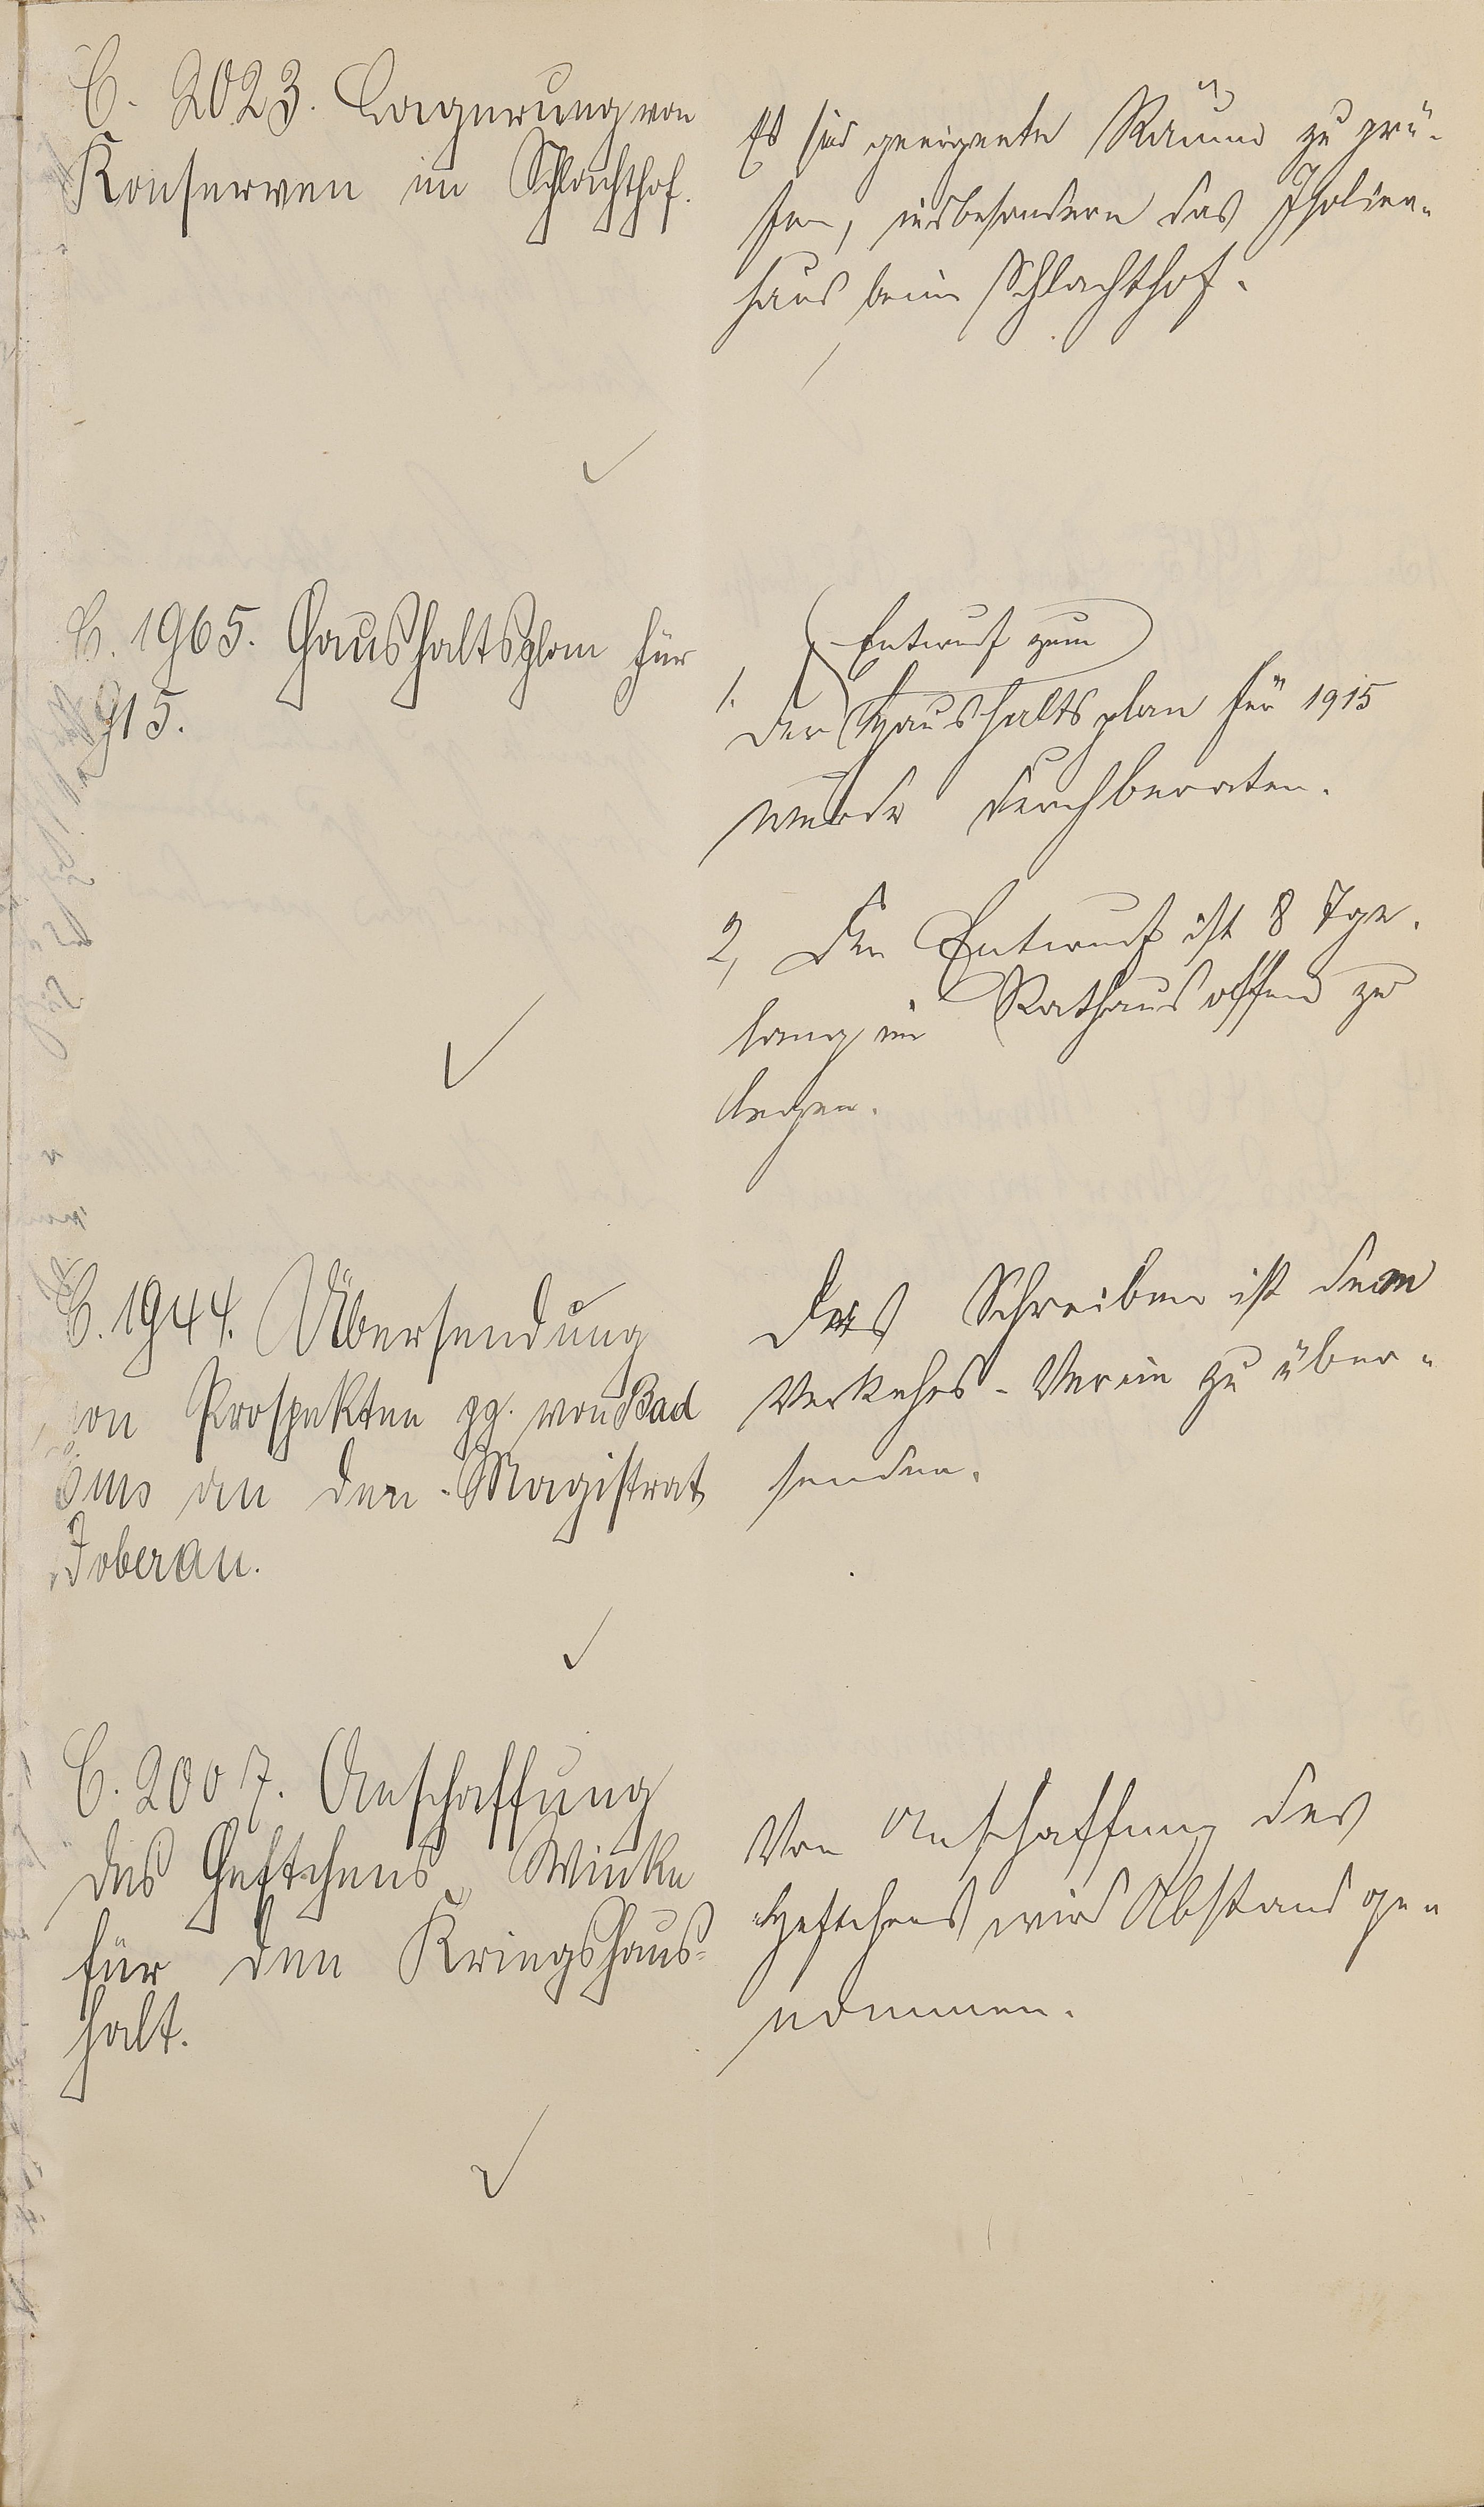 C. 2023. Lagerung von
Konserven im Schlachthof.
Es sind geeignete Räume zu prü-
fen, insbesondere das Isolier-
haus beim Schlachthof.
C. 1965. Haushaltsplan für
1915.
Entwurf zum
1. Der Haushaltsplan für 1915
wurde durchberaten.
2, Der Entwurf ist 8 Tge.
lang im Rathaus offen zu
legen.
C. 1944. Übersendung
von Prospekten pp. von Bad
Ems an den Magistrat
Doberan.
Das Schreiben ist dem
Verkehrs-Verein zu über-
senden.
C. 2007. Anschaffung
des Heftchens „Winke
für den Kriegshaus-
halt.
Von Anschaffung des
Heftchens wird Abstand ge-
nommen.